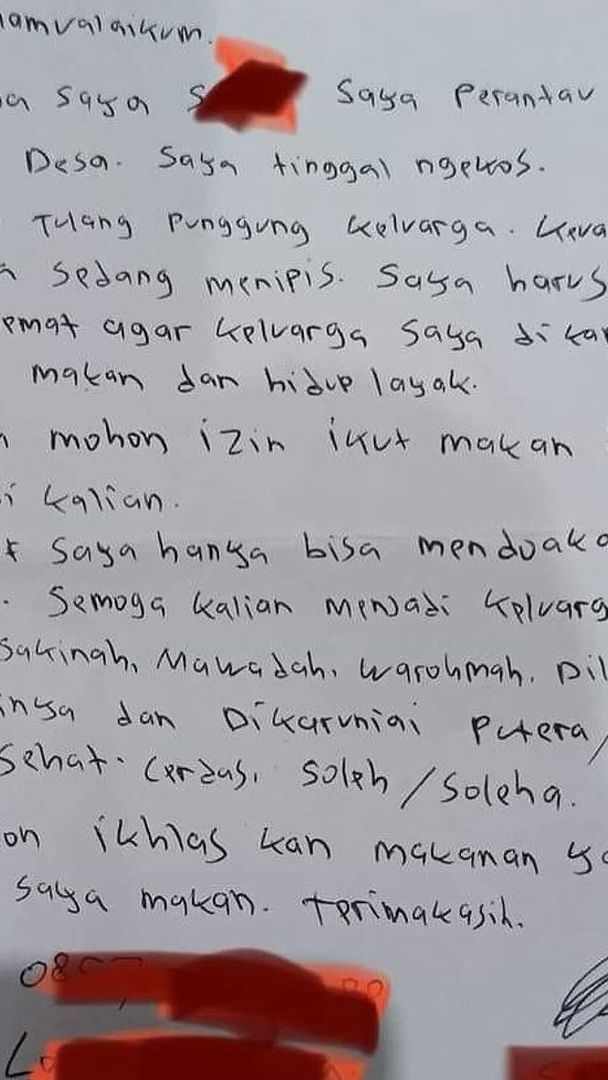 lamualaikum.
a saya S Saya Perantau
Desa. Saya tinggal ngekos.
Tulang Punggung keluarga. Keua
n sedang menipis. Saya harus
emat agar keluarga saya di ka
makan dan hidup layak.
n mohon izin ikut makan
i kalian.
* Saya hanya bisa mendoaka
. Semoga kalian menjadi keluarg
Sakinah, Mawadah, warohmah. Dil
inya dan Dikaruniai Putera/
Sehat. Cerdas, Soleh/Soleha.
on ikhlas kan makanan ya
saya makan. Terimakasih.
08
L